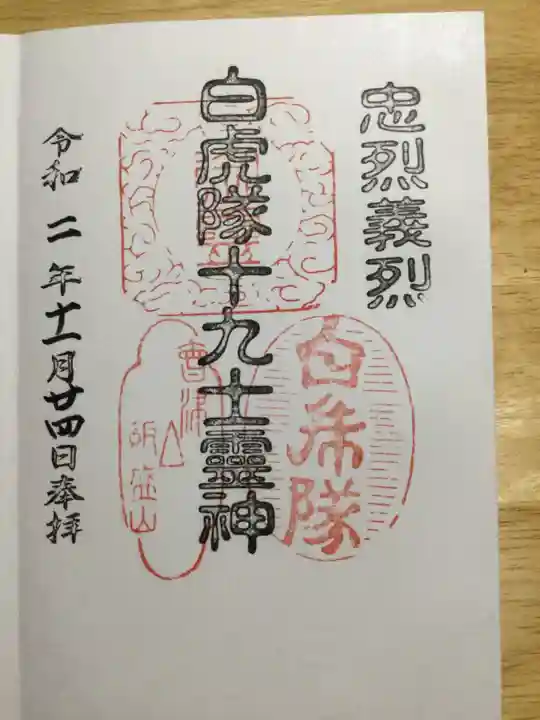 忠烈義烈
白虎隊十九士靈神
白虎隊
會津
飯盛山
令和二年十一月廿四日奉拝